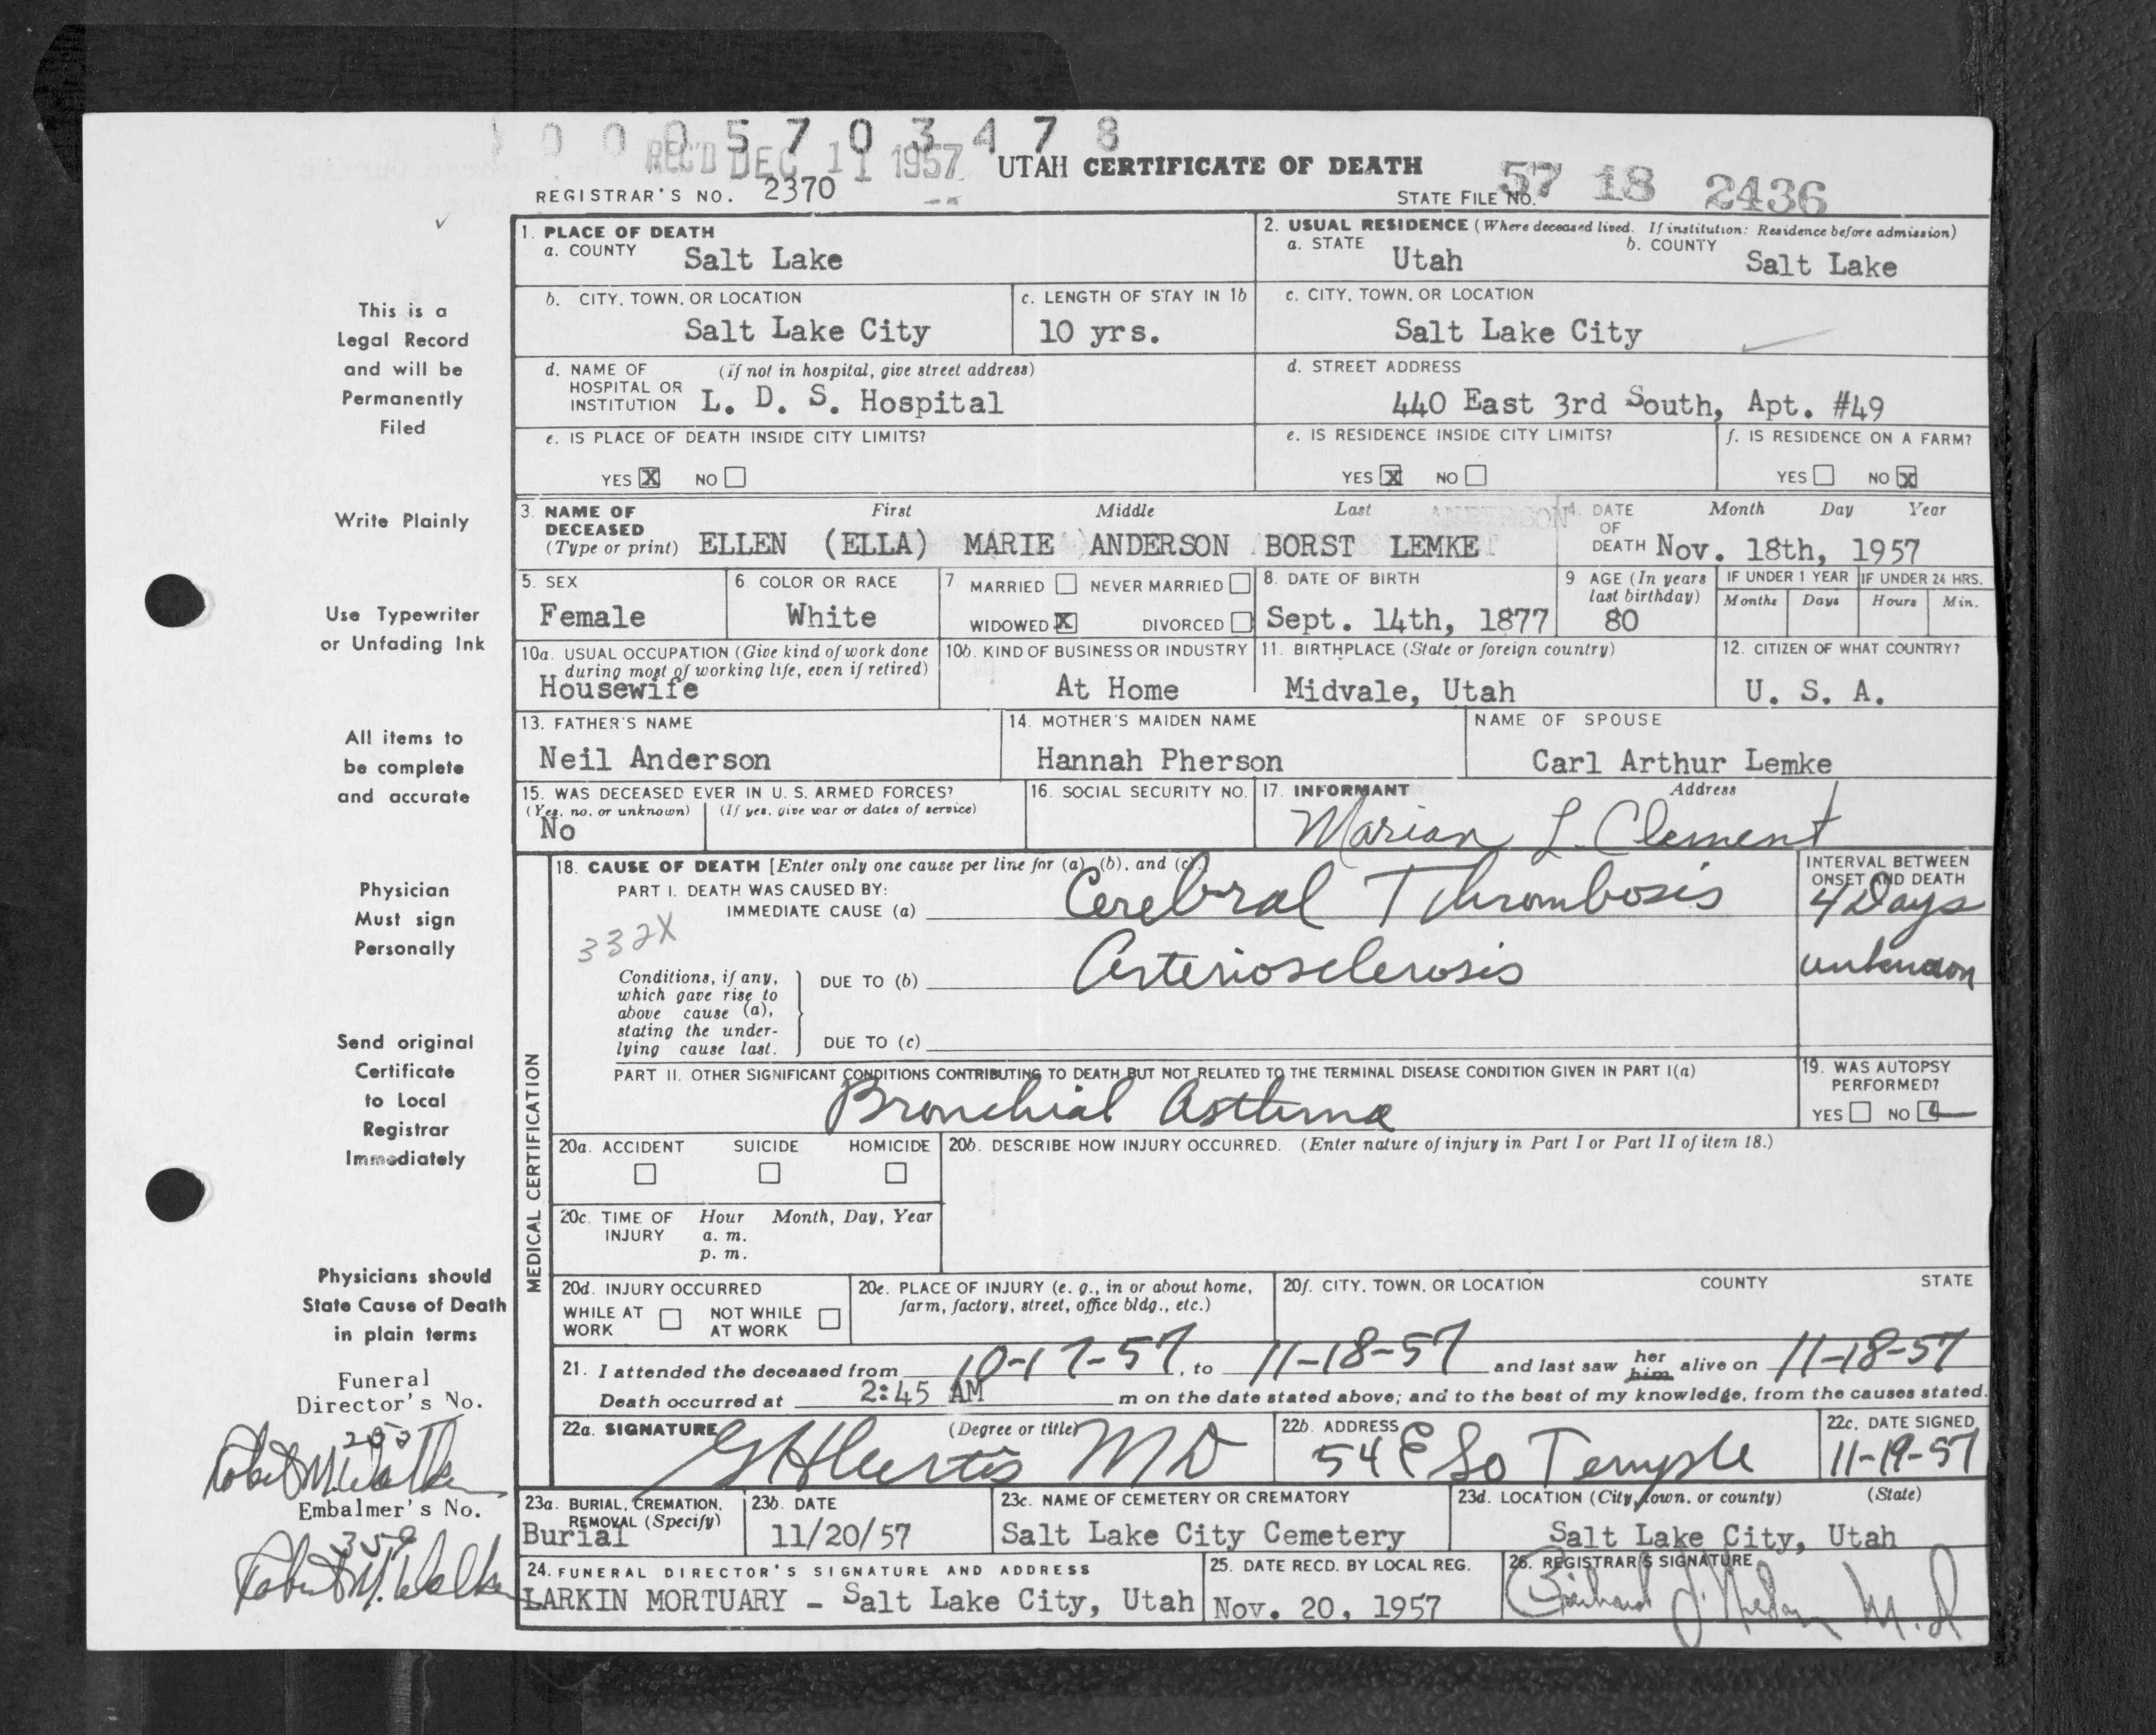 0 0 0 5 7 0 3 4 7 8
REC'D DEC 11 1957
UTAH CERTIFICATE OF DEATH
REGISTRAR'S NO. 2370
STATE FILE NO. 57 18 2436
1. PLACE OF DEATH
a. COUNTY Salt Lake
2. USUAL RESIDENCE (Where deceased lived. If institution: Residence before admission)
a. STATE Utah b. COUNTY Salt Lake
b. CITY, TOWN, OR LOCATION
Salt Lake City
c. LENGTH OF STAY IN 1b
10 yrs.
c. CITY, TOWN, OR LOCATION
Salt Lake City
d. NAME OF (if not in hospital, give street address)
HOSPITAL OR
INSTITUTION L. D. S. Hospital
d. STREET ADDRESS
440 East 3rd South, Apt. #49
e. IS PLACE OF DEATH INSIDE CITY LIMITS?
YES X NO
e. IS RESIDENCE INSIDE CITY LIMITS?
YES X NO
f. IS RESIDENCE ON A FARM?
YES NO X
3. NAME OF DECEASED (Type or print)
First Middle Last
ELLEN (ELLA) MARIE ANDERSON BORST LEMKE
ANDERSON
4. DATE OF DEATH Month Day Year
Nov. 18th, 1957
5. SEX
Female
6. COLOR OR RACE
White
7. MARRIED NEVER MARRIED
WIDOWED X DIVORCED
8. DATE OF BIRTH
Sept. 14th, 1877
9. AGE (In years last birthday)
80
IF UNDER 1 YEAR IF UNDER 24 HRS.
Months Days Hours Min.
10a. USUAL OCCUPATION (Give kind of work done
during most of working life, even if retired)
Housewife
10b. KIND OF BUSINESS OR INDUSTRY
At Home
11. BIRTHPLACE (State or foreign country)
Midvale, Utah
12. CITIZEN OF WHAT COUNTRY?
U. S. A.
13. FATHER'S NAME
Neil Anderson
14. MOTHER'S MAIDEN NAME
Hannah Pherson
NAME OF SPOUSE
Carl Arthur Lemke
15. WAS DECEASED EVER IN U. S. ARMED FORCES?
(Yes, no, or unknown) (If yes, give war or dates of service)
No
16. SOCIAL SECURITY NO.
17. INFORMANT Address
Marian L. Clement
18. CAUSE OF DEATH [Enter only one cause per line for (a), (b), and (c).
PART I. DEATH WAS CAUSED BY:
IMMEDIATE CAUSE (a) Cerebral Thrombosis
INTERVAL BETWEEN
ONSET AND DEATH
4 Days
332X
Conditions, if any,
which gave rise to
above cause (a),
stating the under-
lying cause last.
DUE TO (b) Arteriosclerosis
unknown
DUE TO (c)
PART II. OTHER SIGNIFICANT CONDITIONS CONTRIBUTING TO DEATH BUT NOT RELATED TO THE TERMINAL DISEASE CONDITION GIVEN IN PART I(a)
Bronchial Asthma
19. WAS AUTOPSY
PERFORMED?
YES NO
MEDICAL CERTIFICATION
20a. ACCIDENT SUICIDE HOMICIDE
20b. DESCRIBE HOW INJURY OCCURRED. (Enter nature of injury in Part I or Part II of item 18.)
20c. TIME OF INJURY Hour Month, Day, Year
a. m.
p. m.
20d. INJURY OCCURRED
WHILE AT WORK NOT WHILE AT WORK
20e. PLACE OF INJURY (e. g., in or about home,
farm, factory, street, office bldg., etc.)
20f. CITY, TOWN, OR LOCATION COUNTY STATE
21. I attended the deceased from 10-17-57, to 11-18-57 and last saw her him alive on 11-18-57
Death occurred at 2:45 AM m on the date stated above; and to the best of my knowledge, from the causes stated.
22a. SIGNATURE (Degree or title)
G H Curtis MD
22b. ADDRESS
54 E So Temple
22c. DATE SIGNED
11-19-57
23a. BURIAL, CREMATION,
REMOVAL (Specify)
Burial
23b. DATE
11/20/57
23c. NAME OF CEMETERY OR CREMATORY
Salt Lake City Cemetery
23d. LOCATION (City, town, or county) (State)
Salt Lake City, Utah
24. FUNERAL DIRECTOR'S SIGNATURE AND ADDRESS
LARKIN MORTUARY - Salt Lake City, Utah
25. DATE RECD. BY LOCAL REG.
Nov. 20, 1957
26. REGISTRAR'S SIGNATURE
M.D
This is a
Legal Record
and will be
Permanently
Filed
Write Plainly
Use Typewriter
or Unfading Ink
All items to
be complete
and accurate
Physician
Must sign
Personally
Send original
Certificate
to Local
Registrar
Immediately
Physicians should
State Cause of Death
in plain terms
Funeral
Director's No.
Robert M. Walker
Embalmer's No.
359
Robert M. Walker